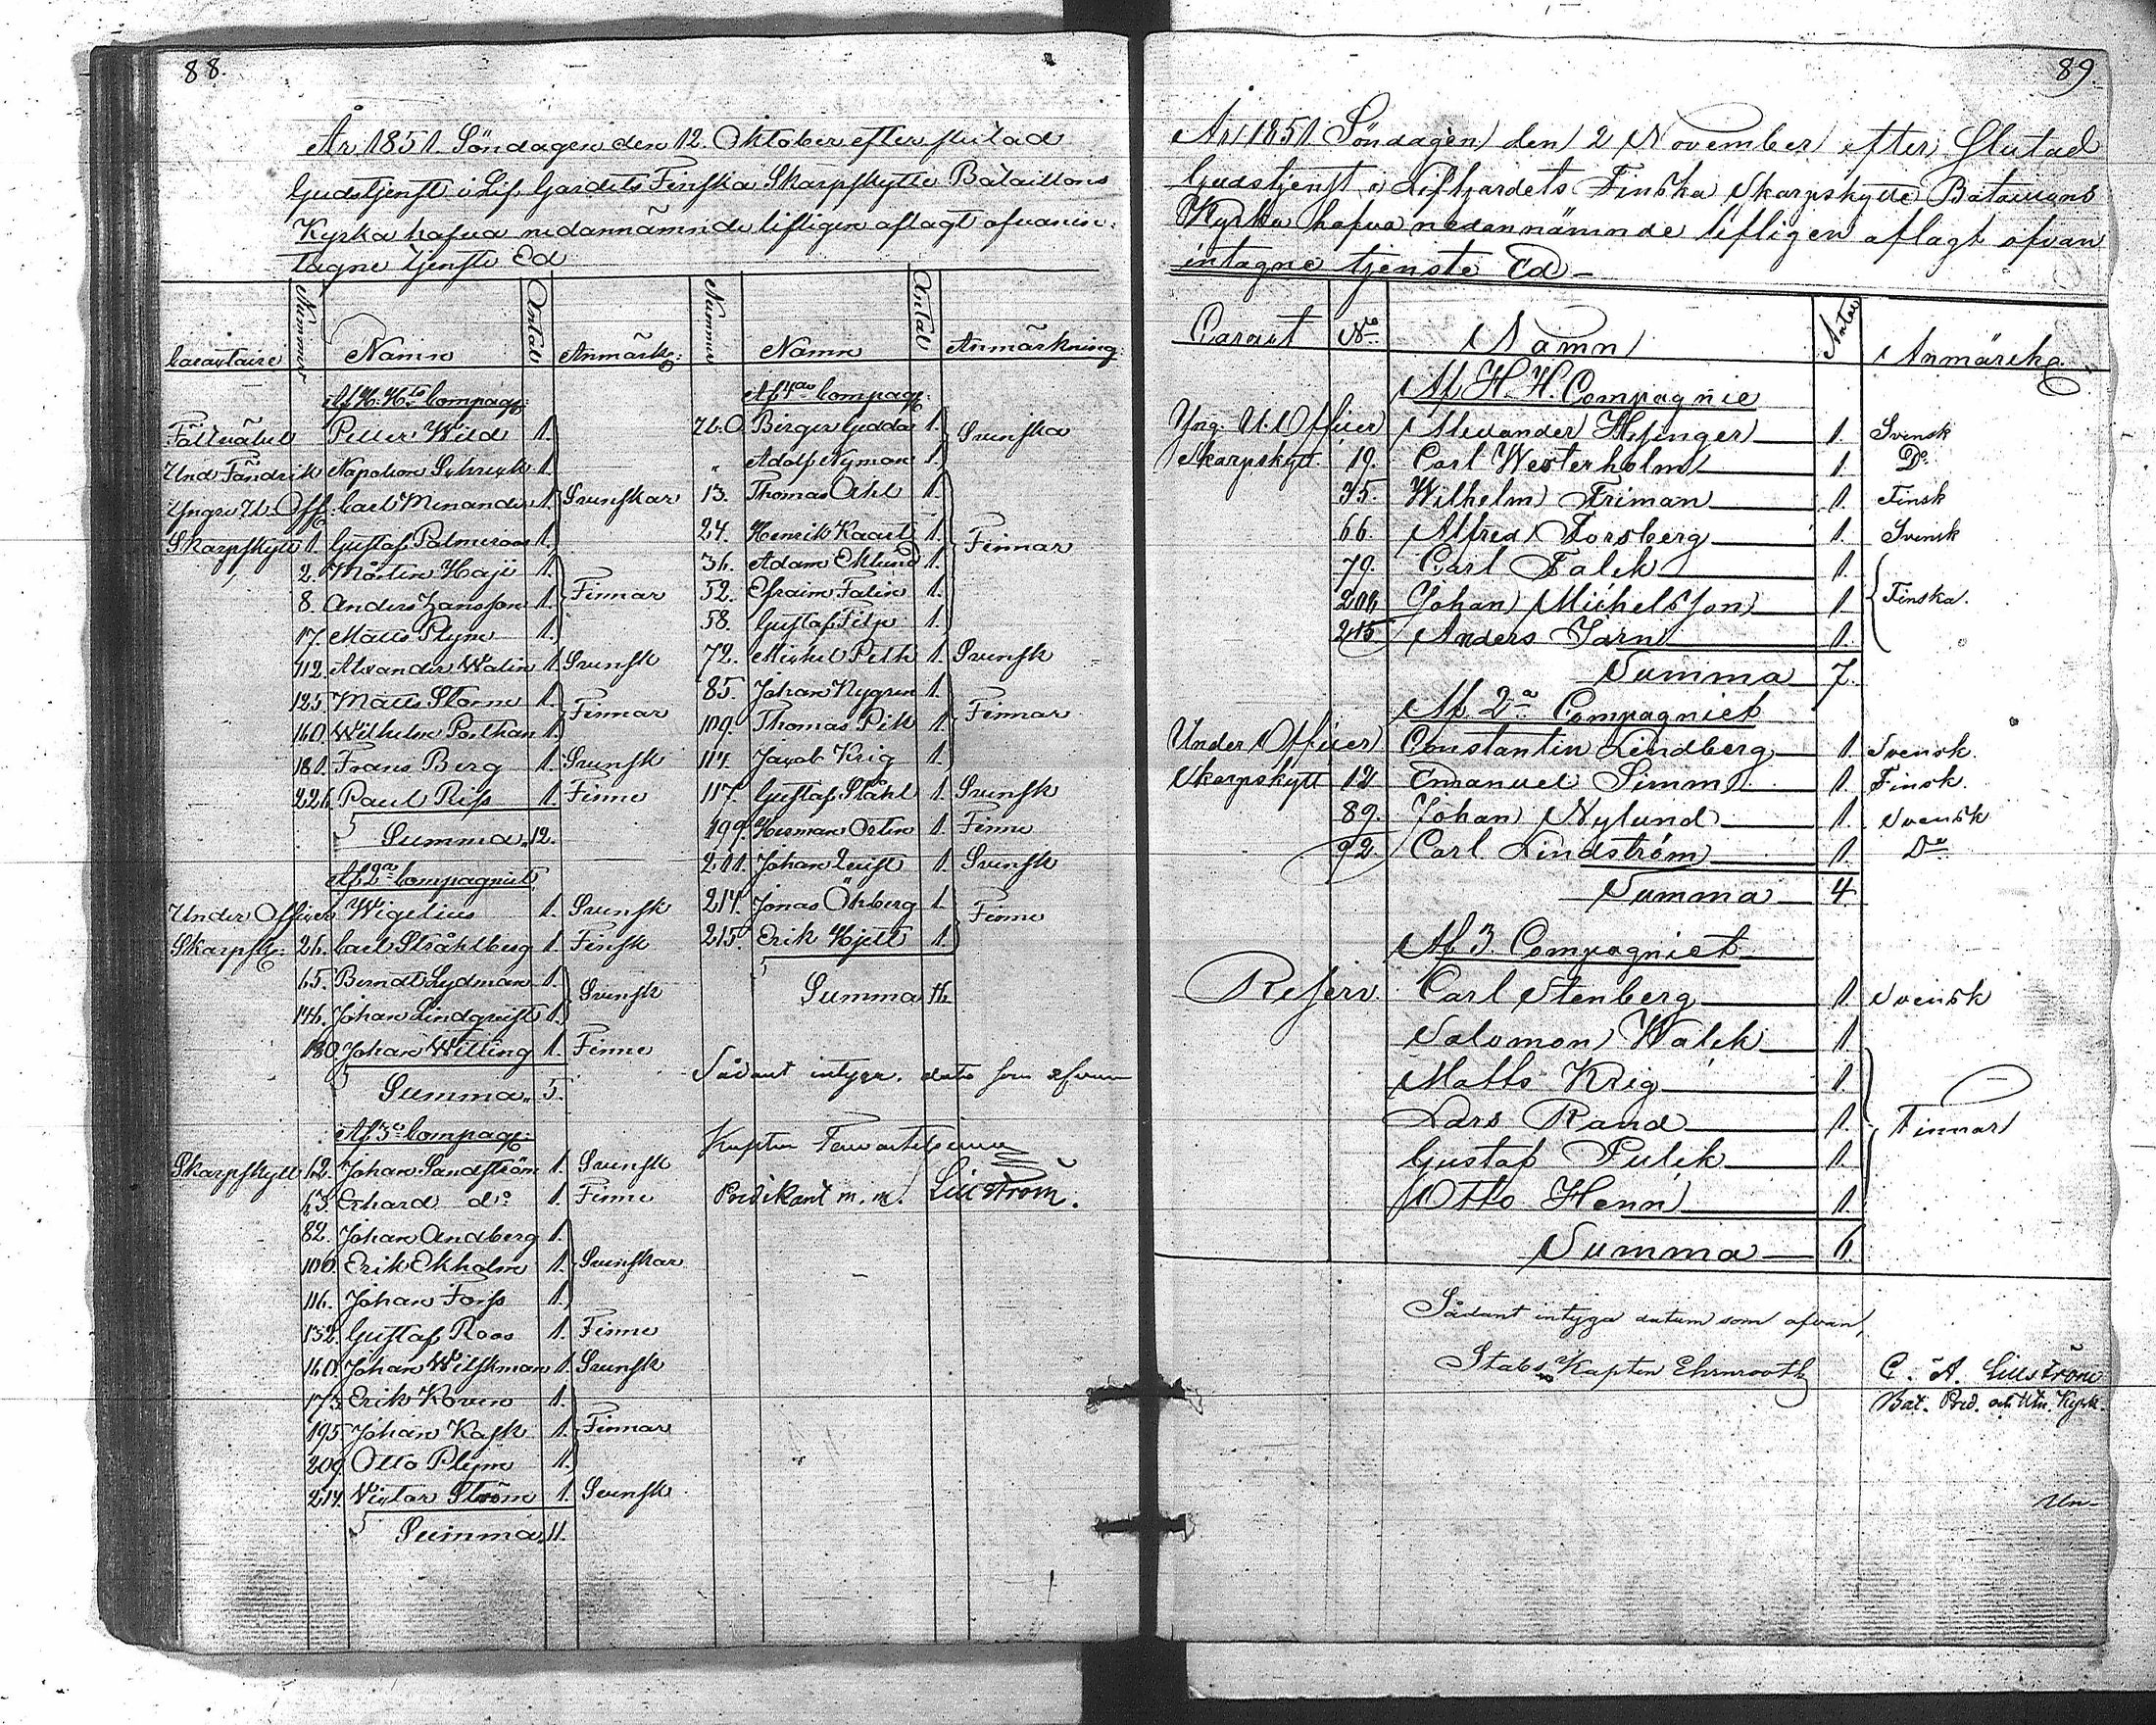 88.
År 1851. Söndagen den 12. Oktober efter slutad
Gudstjenst i Lif Gardets Finska Skarpskytte Bataillons
Kyrka hafva nedannämnde lifligen aflagt ofvanin-
tagne tjenste Ed
Nummer Namn Antal Anmärk:
Af H: H:s Compag:
Petter Wild 1.
Und Fändrik Napoleon 1.
Yngre U. Off. Carl Menander 1. Svenskar
Skarpskytt 1. Gustaf Palmroos 1.
2. Mårten Haji 1.
8. Anders Jansson 1. Finnar
17. Matts Plym 1.
112. Alexander Walin 1. Svensk
125. Matts Storm 1.
160. Wilhelm Porthan 1. Finnar
181. Frans Berg 1. Svensk
226. Paul Riss 1. Finne
Summa. 12.
Af 2a Compagniet
Under Officer Wigelius 1. Svensk
Skarpsk: 26. Carl Stråhlberg 1. Finsk
65. Berndt Lydman 1.
146. Johan Lindqvist 1. Svensk
180. Johan Witting 1. Finne
Summa. 5.
Af 3e Compag:
Skarpskytt 62. Johan Sandström 1. Svensk
63. Erhard do 1. Finne
82. Johan Andberg 1.
100. Erik Ekholm 1. Svenskar
116. Johan Forss 1.
132. Gustaf Roos 1. Finne
160. Johan Wilskman 1. Svensk
173. Erik Koven 1.
195. Johan Kask 1. Finnar
209. Otto Plym 1.
214. Victor Ström 1. Svensk
Summa. 11.
Nummer Namn Antal Anmärkning
Af 4de Compag:
Birger Gadda 1. Svenska
Adolf Nyman 1.
13. Thomas Ahl 1.
24. Henrik Kaart 1. Finnar
36. Adam Eklund 1.
52. Efraim Falin 1.
58. Gustaf Filp 1.
72. Mickel Pelk 1. Svensk
85. Johan Nygren 1.
109. Thomas Pik 1. Finnar
114. Jacob Krig 1.
117. Gustaf Ståhl 1. Svensk
199. Herman Ostin 1. Finne
201. Johan Qvist 1. Svensk
214. Jonas Öhberg 1. Finne
215. Erik Hjelt 1.
Summa 16
Sådant intyga, dato som ofvan
Kapten
Predikant m. m. Lillström.
89.
År 1851 Söndagen den 2 November efter slutad
Gudstjenst i Lif Gardets Finska Skarpskytte Bataillons
Kyrka hafva nedannämnde lifligen aflagt ofvan
intagne tjenste Ed
No Namn Antal Anmärck
Af H. H. Compagnie
Yng. U. Officer Alexander Hisinger 1. Svensk
Skarpskytt. 19. Carl Westerholm 1. Do
35. Wilhelm Friman 1. Finsk
66. Alfred Forsberg 1. Svensk
79. Carl Falck 1.
Johan Michelsson 1. Finska.
215. Anders Jarn 1.
Summa 7.
Af 2a Compagniet
Under Officer Constantin Lindberg 1. Svensk.
Skarpskytt 12 Emanuel Simm 1. Finsk.
89. Johan Nylund 1. Svensk
92. Carl Lindström 1. Do
Summa 4.
Af 3. Compagniet
Reserv. Carl Stenberg 1. Svensk
Salomon Walck 1.
Matts Krig 1.
Lars Rand 1. Finnar
Gustaf Pulck 1.
Otto Henn 1.
Summa 6.
Sådant intyga datum som ofvan,
Stabs Kapten Ehrnrooth C. A. Lillström
Bat. Pred. och Kyrk.
Un-